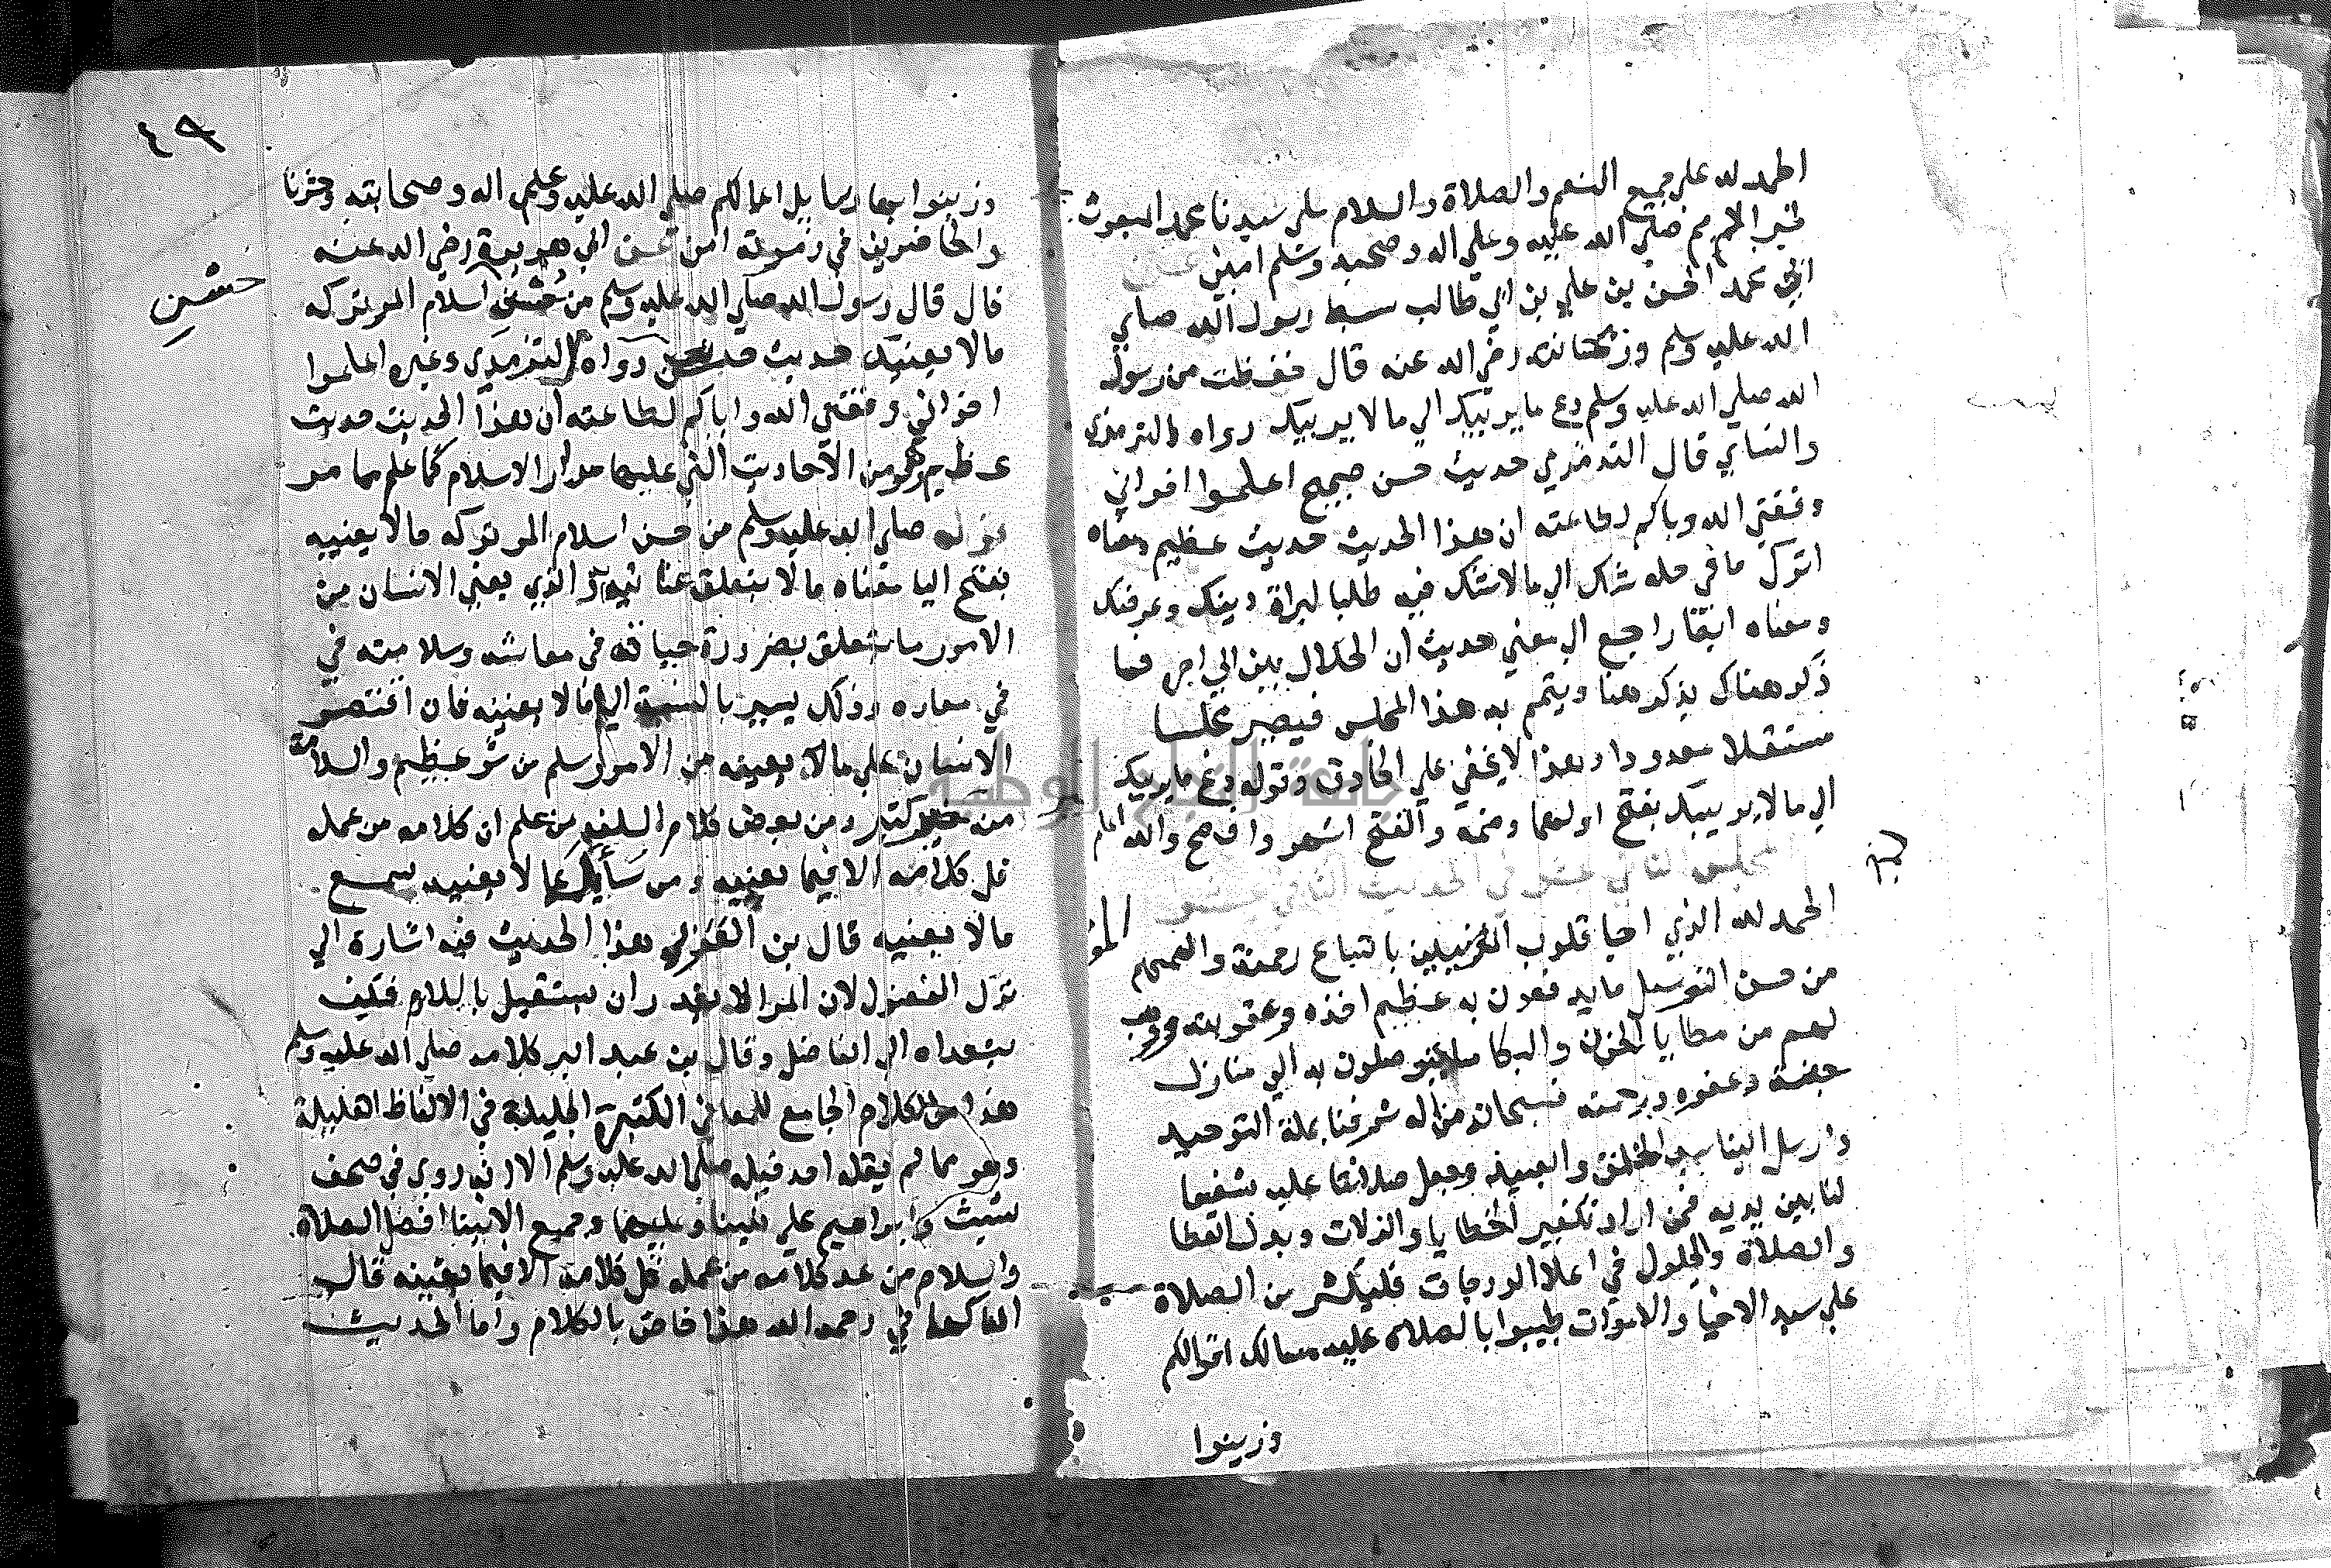 الحمد لله علي جميع النعم والصلاة والسلام علي سيدنا محمد المبعوث
لخير الامم صلي الله عليه وعلي اله وصحبه وسلم امين عن
ابي محمد الحسن بن علي بن ابي طالب سبط رسول الله صلي
الله عليه وسلم وريحانته رضي الله عنه قال حفظت من رسول
الله صلي الله عليه وسلم دع ما يريبك الي ما لا يريبك رواه الترمذي
والنساي قال الترمذي حديث حسن صحيح اعلموا اخواني
وفقني الله وياكم لطاعته ان هذا الحديث حديث عظيم معناه
اترك ما في حله شك الي ما لا شك فيه طلبا لبراة دينك وعرضك
ومعناه ايضا راجع الي معني حديث ان الحلال بين الي اخره فما
ذكر هناك يذكر هنا ويتمم به هذا المجلس فيصير مجلسا
مستقلا معدودا وهذا لا يخفي علي الحاذق وقوله دع ما يريبك
الي ما لا يريبك بفتح اولهما وضمه والفتح اشهر وافصح والله اعلم
مجلس الثاني عشر في الحديث الثاني عشر
الحمد لله الذي احيا قلوب باتباع رحمته والهمهم
من حسن التوسل ما يدفعون به عظيم اخذه وعقوبته ووهب
لهم من مطايا الحزن والبكا ما يتوصلون به الي منازل
جنته وعفوه ورحمته فسبحان من اله شرفنا بملة التوحيد
وارسل الينا سيد الخلق والعبيد وجعل صلاتنا عليه شفيعا
لنا بين يديه فمن اراد تكفير الخطايا والزلات وبذل العطا
والصلاة والحلول في اعلا الدرجات فليكثر من الصلاة
علي سيد الاحيا والاموات طيبوا بالصلاة عليه مسالك اقوالكم
وزينوا
٤٩
وزينوا بها رسايل اعمالكم صلي الله عليه وعلي اله وصحابته وحشرنا
والحاضرين في زمرته امين عن ابي هريرة رضي الله عنه
قال قال رسول الله صلي الله عليه وسلم من حسن اسلام المر تركه
حسن
ما لا يعنيه حديث حسن رواه الترمذي وغيره اعلموا
اخواني وفقني الله واياكم لطاعته ان هذا الحديث حديث
عظيم وهو من الاحاديث التي عليها مدار الاسلام كما علم مما مر
قوله صلي الله عليه وسلم من حسن اسلام المر تركه ما لا يعنيه
بفتح اليا معناه ما لا يتعلق عنايته والذي يعني الانسان من
الامور ما يتعلق بضرورة حياته في معاشه وسلامته في
في معاده وذلك يسير بالنسبة الي ما لا يعنيه فان اقتصر
الانسان علي ما لا يعنيه من الامور سلم من شر عظيم والسلامة
من خير كثير ومن بعض كلام السلف من علم ان كلامه من عمله
قل كلامه الا فيما يعنيه ومن سأل عما لا يعنيه سمع
ما لا يعنيه قال بن العربي هذا الحديث فيه اشارة الي
ترك الفضول لان المر لا يقدر ان يستقيل باللام فكيف
يتعداه الي الفاضل وقال بن عبد البر كلامه صلي الله عليه وسلم
هذا من الكلام الجامع للمعاني الكثيرة الجليلة في الالفاظ القليلة
وهو مما لم يقله احد قبله صلي الله عليه وسلم الا انه روي في صحف
شيث وابراهيم علي نبينا وعليهما وجميع الانبيا افضل الصلاة
والسلام من عد كلامه من عمله قل كلامه الا فيما يعنيه قال
الفاكهاني رحمه الله هذا خاص بالكلام واما الحديث